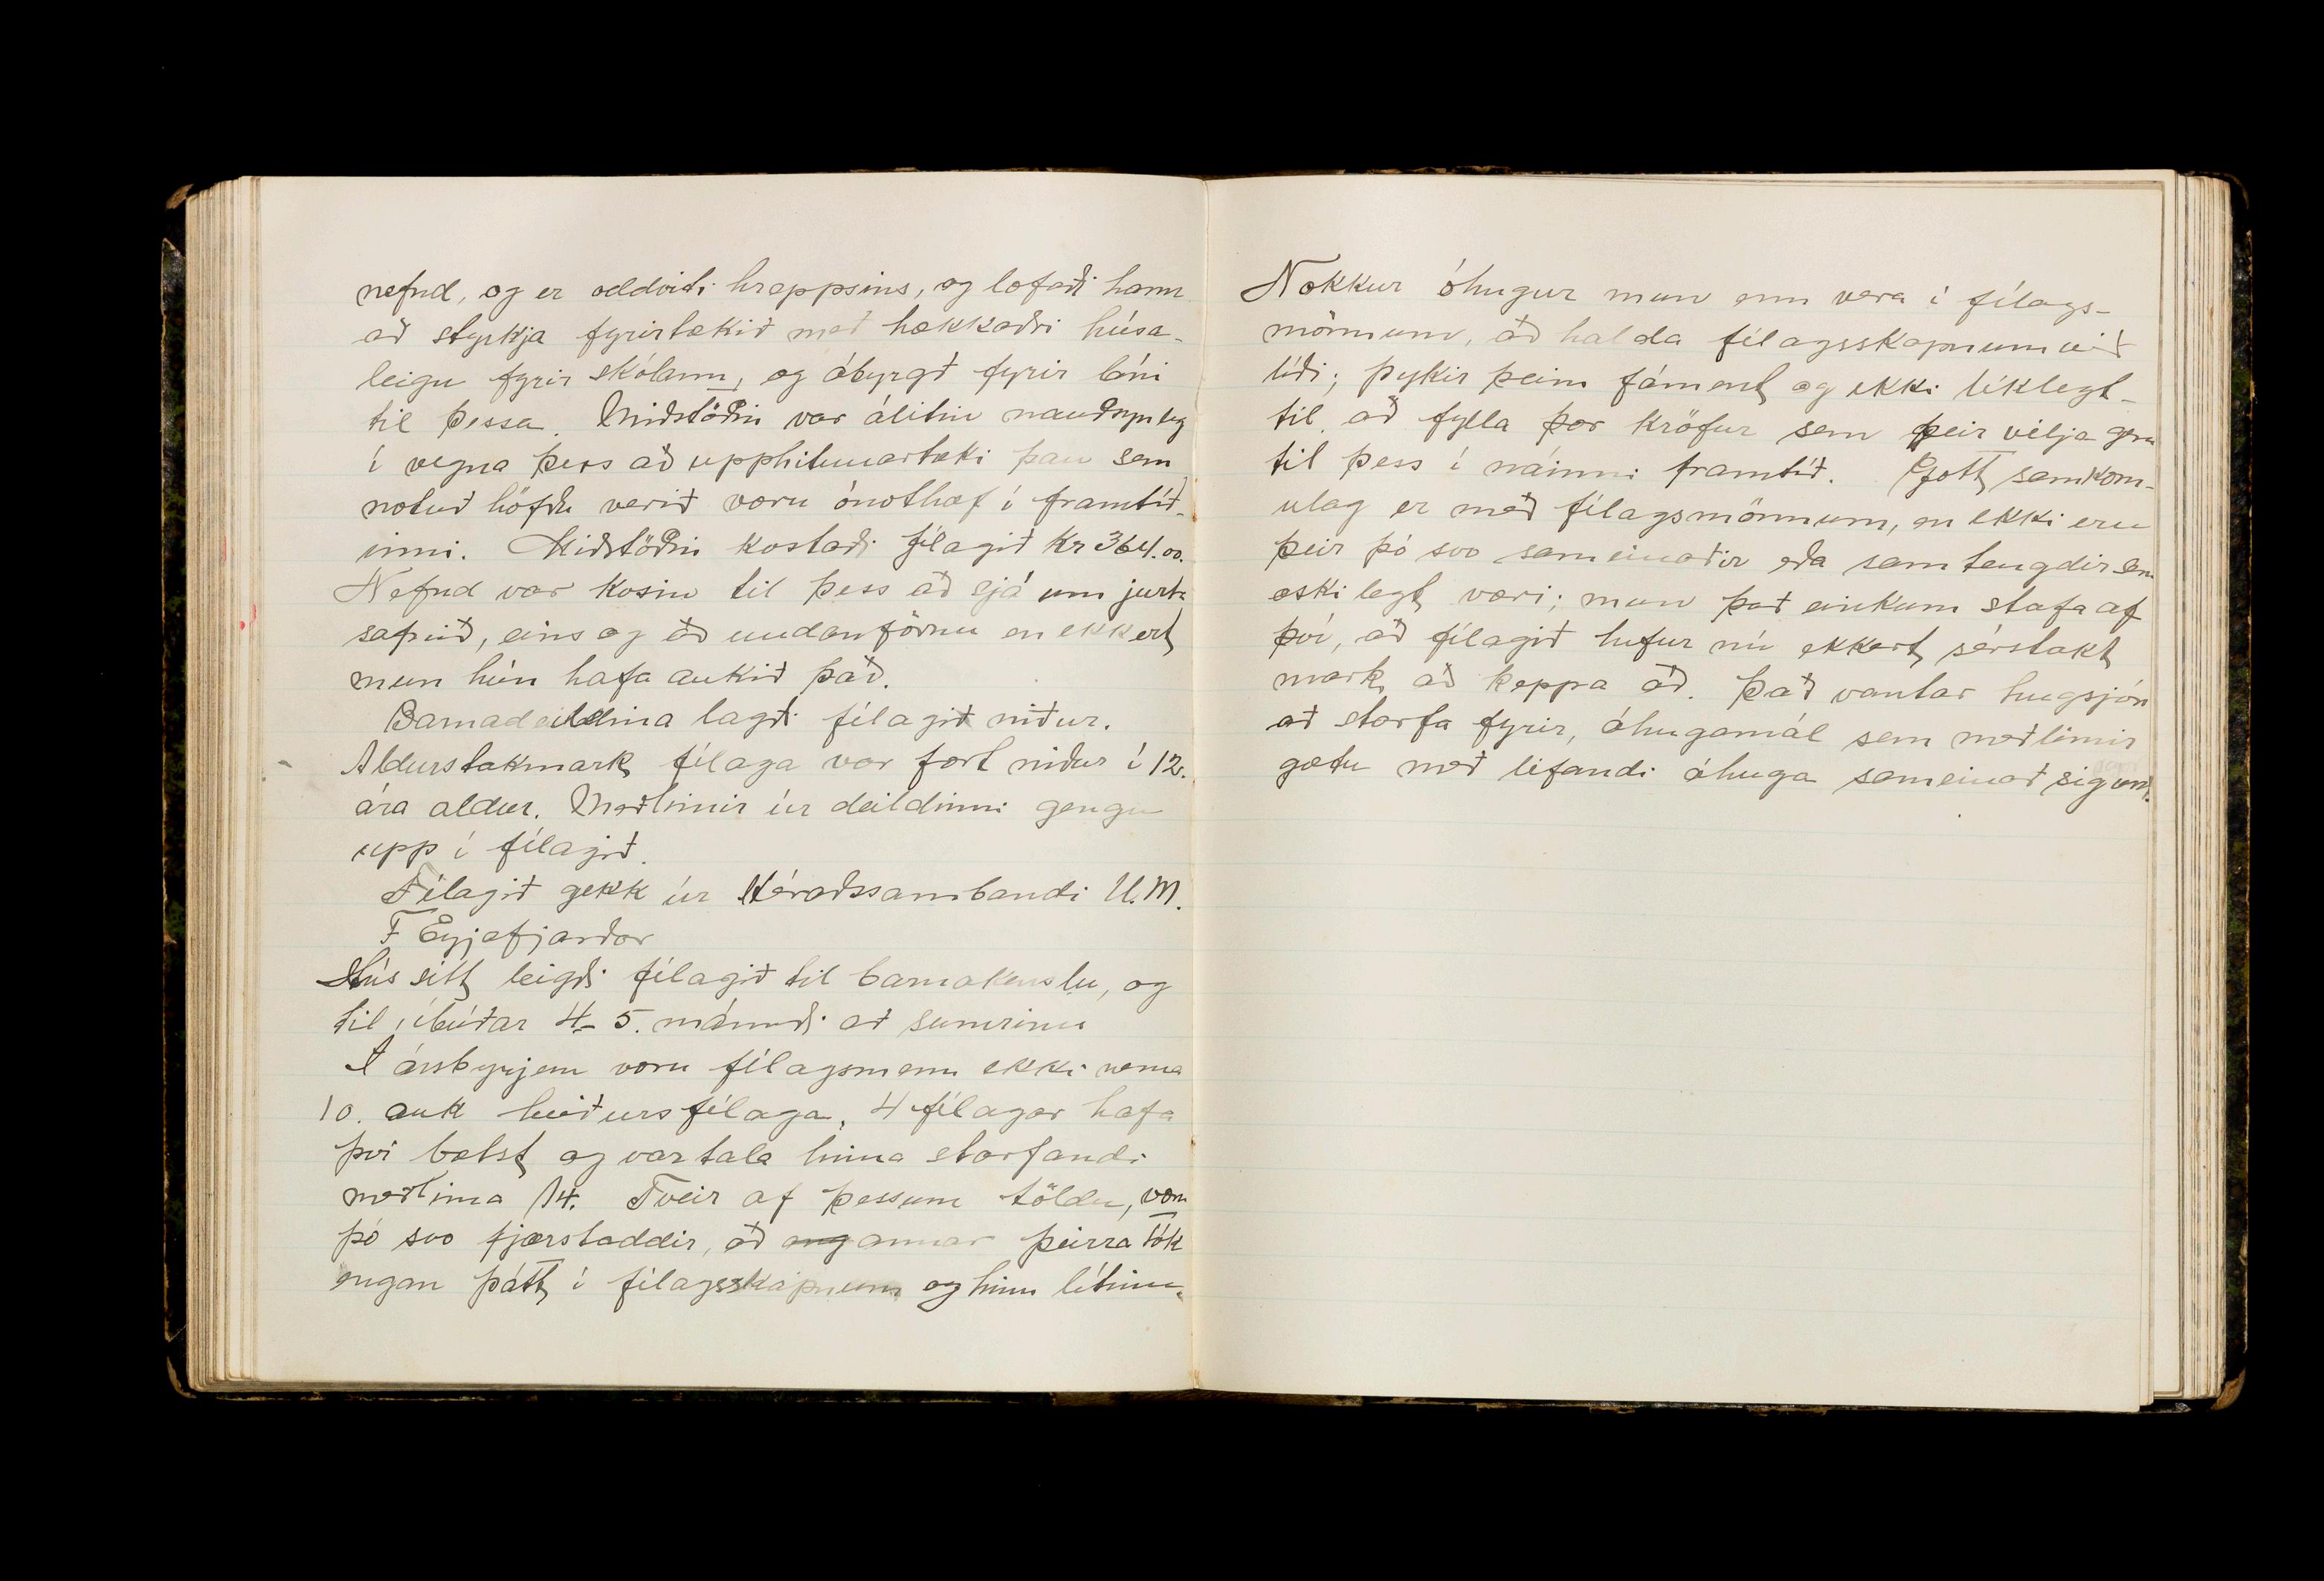 nefnd, og er oddviti hreppsins, og lofaði hann
að styrkja fyrirtækið með hækkaðri húsa-
leigu fyrir skólann, og ábyrgð fyrir láni
til þessa. Miðstöðin var álitin nauðsynleg
í vegna þess að upphitunartæki þau sem
notuð höfðu verið voru ónothæf í framtíð-
inni. Miðstöðin kostaði félagið kr 364.00.
Nefnd var kosin til þess að sjá um jurta
safnið, eins og að undanförnu en ekkert
mun hún hafa aukið það.
Barnadeildina lagði félagið niður.
Aldurstakmark félaga var fært niður í 12.
ára aldur. Meðlimir úr deildinni gengu
upp í félagið.
Félagið gekk úr Héraðssambandi U.M.
F Eyjafjarðar
Hús sitt leigði félagið til barnakenslu, og
til íbúðar 4-5. mánuði að sumrinu
Í ársbyrjun voru félagsmenn ekki nema
10. auk heiðursfélaga, 4 félagar hafa
því bætst og var tala hinna starfandi
meðlima 14. Tveir af þessum töldu, voru
þó svo fjærstaddir, að eng annar þeirra tók
engan þátt í félagsskapnum og hinn lítinn.
Nokkur óhugur mun enn vera í félags-
mönnum, að halda félagsskapnum við
líði; þykir þeim fáment og ekki líklegt-
til að fylla þær kröfur sem þeir vilja gera
til þess í náinni framtíð. Gott samkom-
ulag er með félagsmönnum, en ekki eru
þeir þó svo sameinaðir eða samtengdir sem
æskilegt væri; mun það einkum stafa af
því, að félagið hefur nú ekkert sérstakt
mark að keppa að. Það vantar hugsjón
að starfa fyrir, áhugamál sem meðlimir
gætu með lifandi áhuga sameinað sig um.